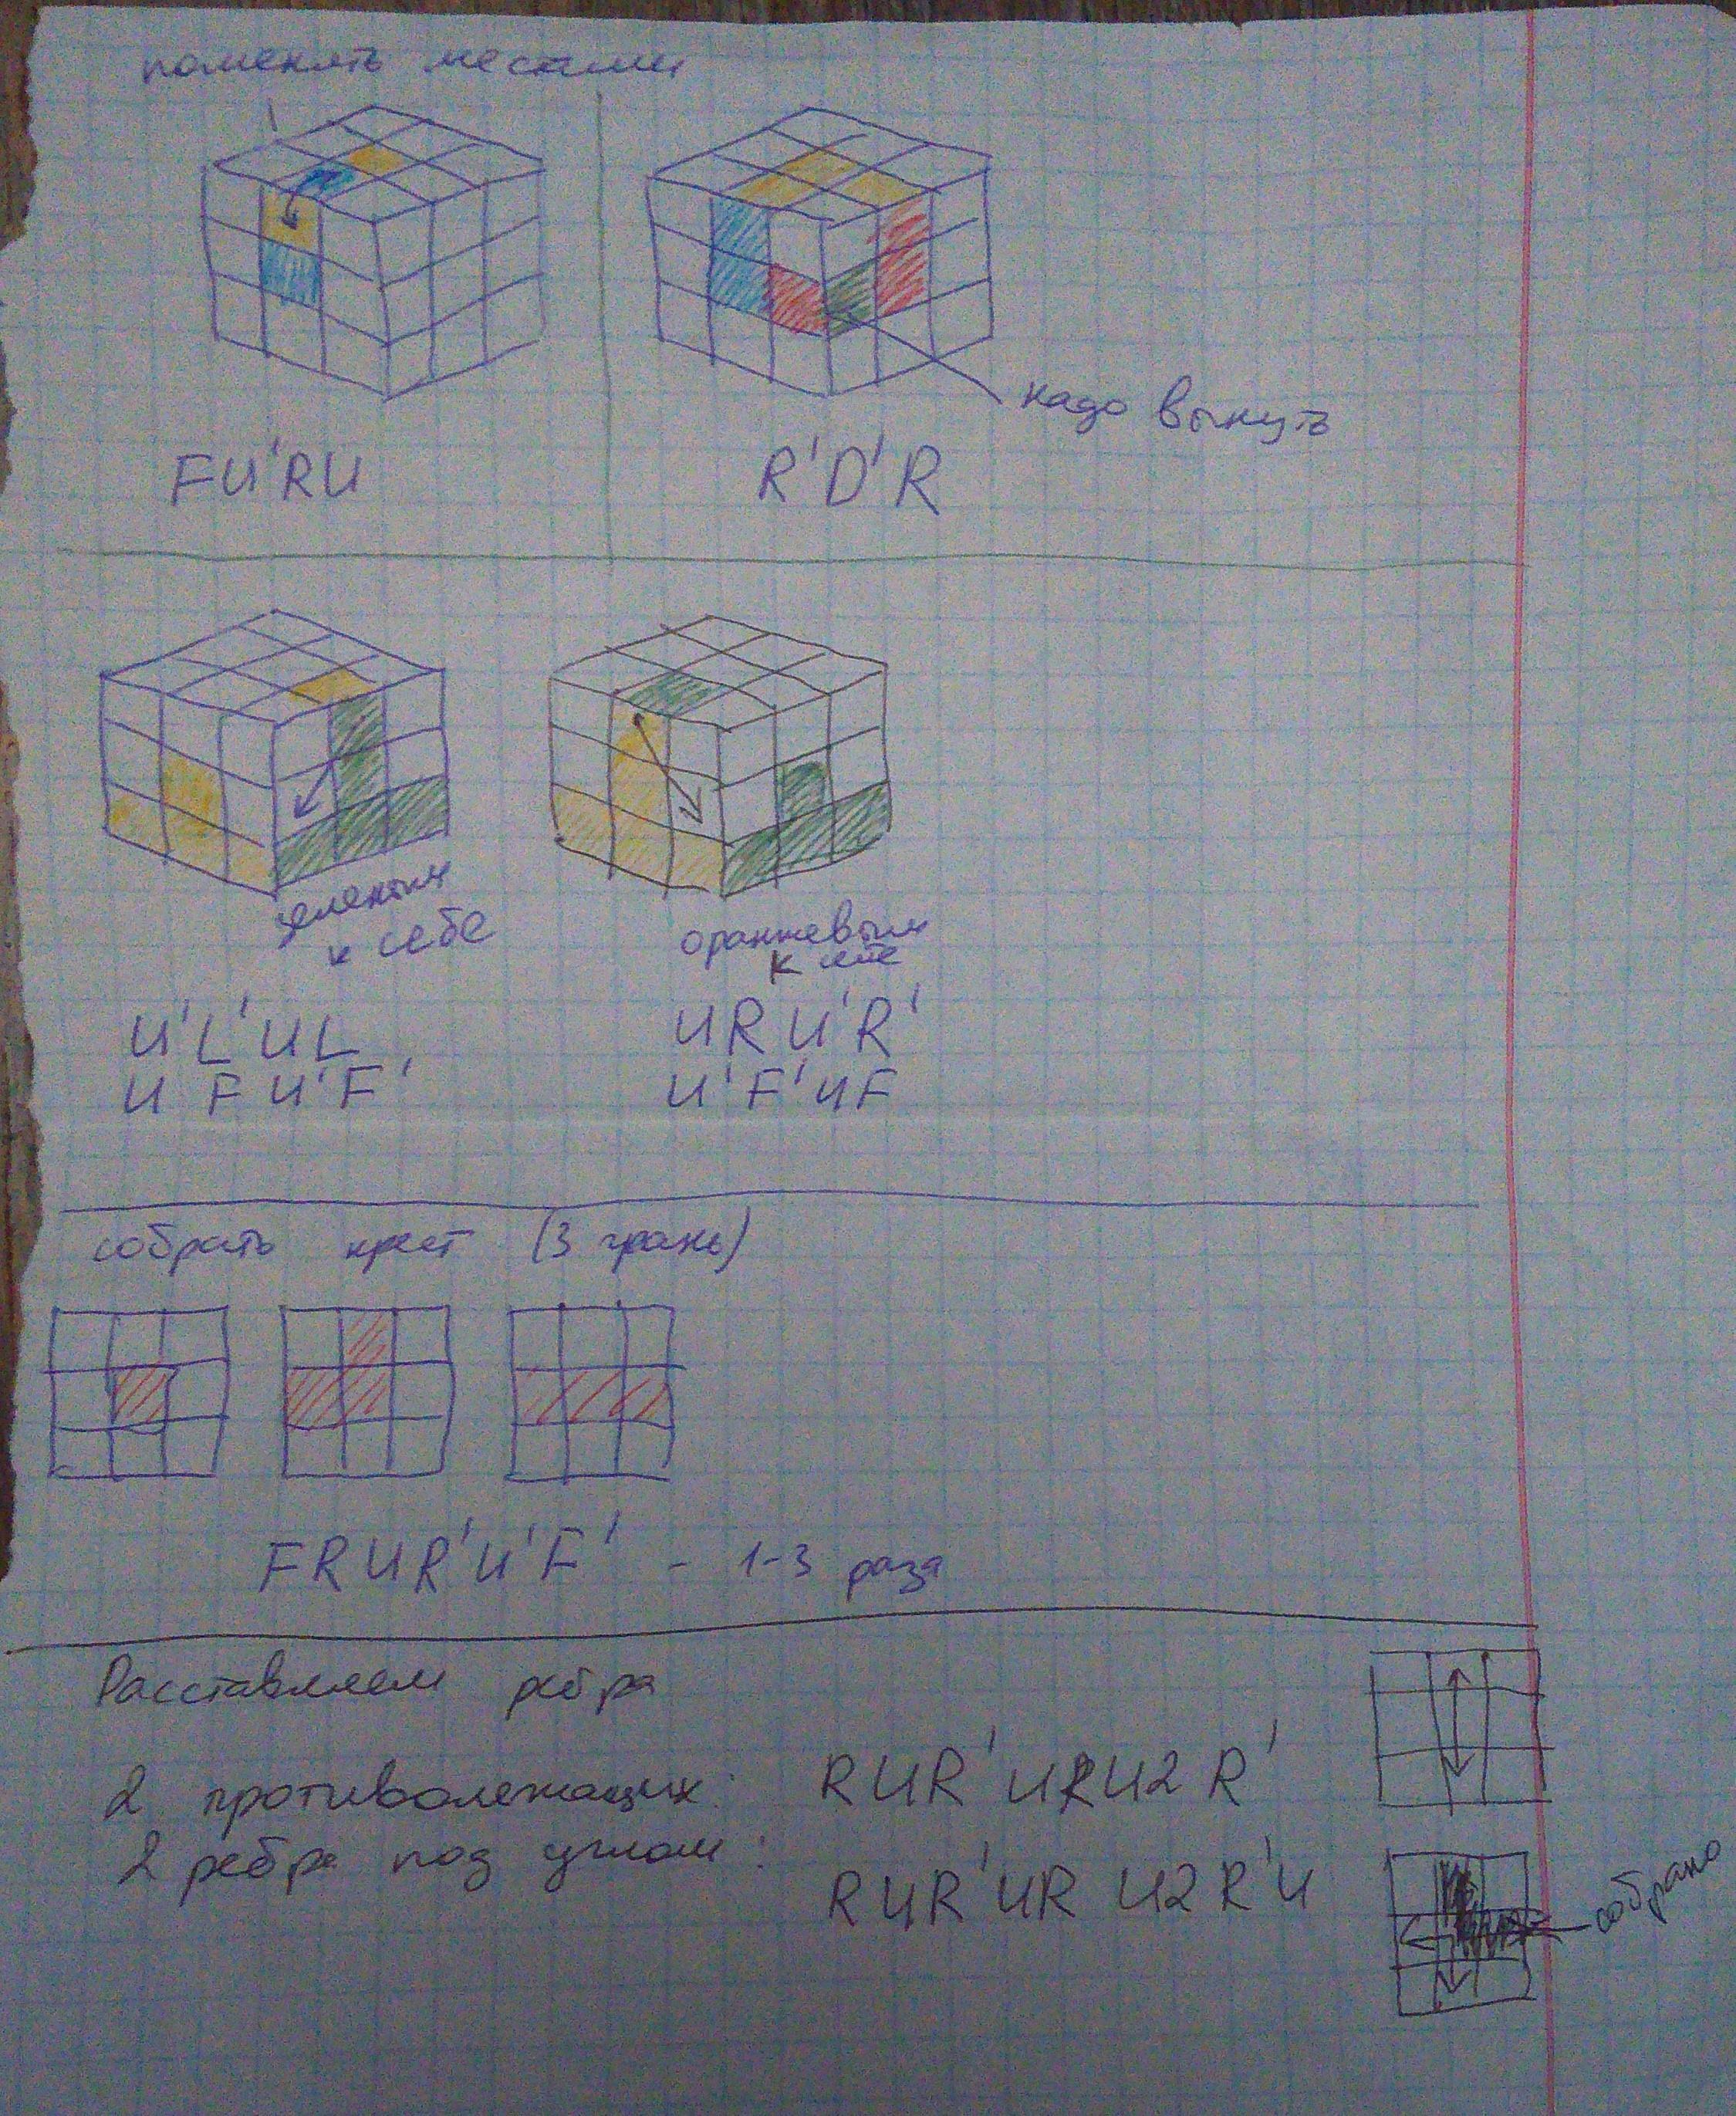 поменять местами
FU'RU
R'D'R
надо вынуть
зеленым
к себе
оранжевым
к себе
U'L'UL
U F U'F'
URU'R'
U'F'UF
собрать крест (3 грань)
FRUR'U'F' - 1-3 раза
Расставляем ребра
2 противолежащих: RUR'URU2R'
2 ребра под углом: RUR'UR U2R'U
собрано